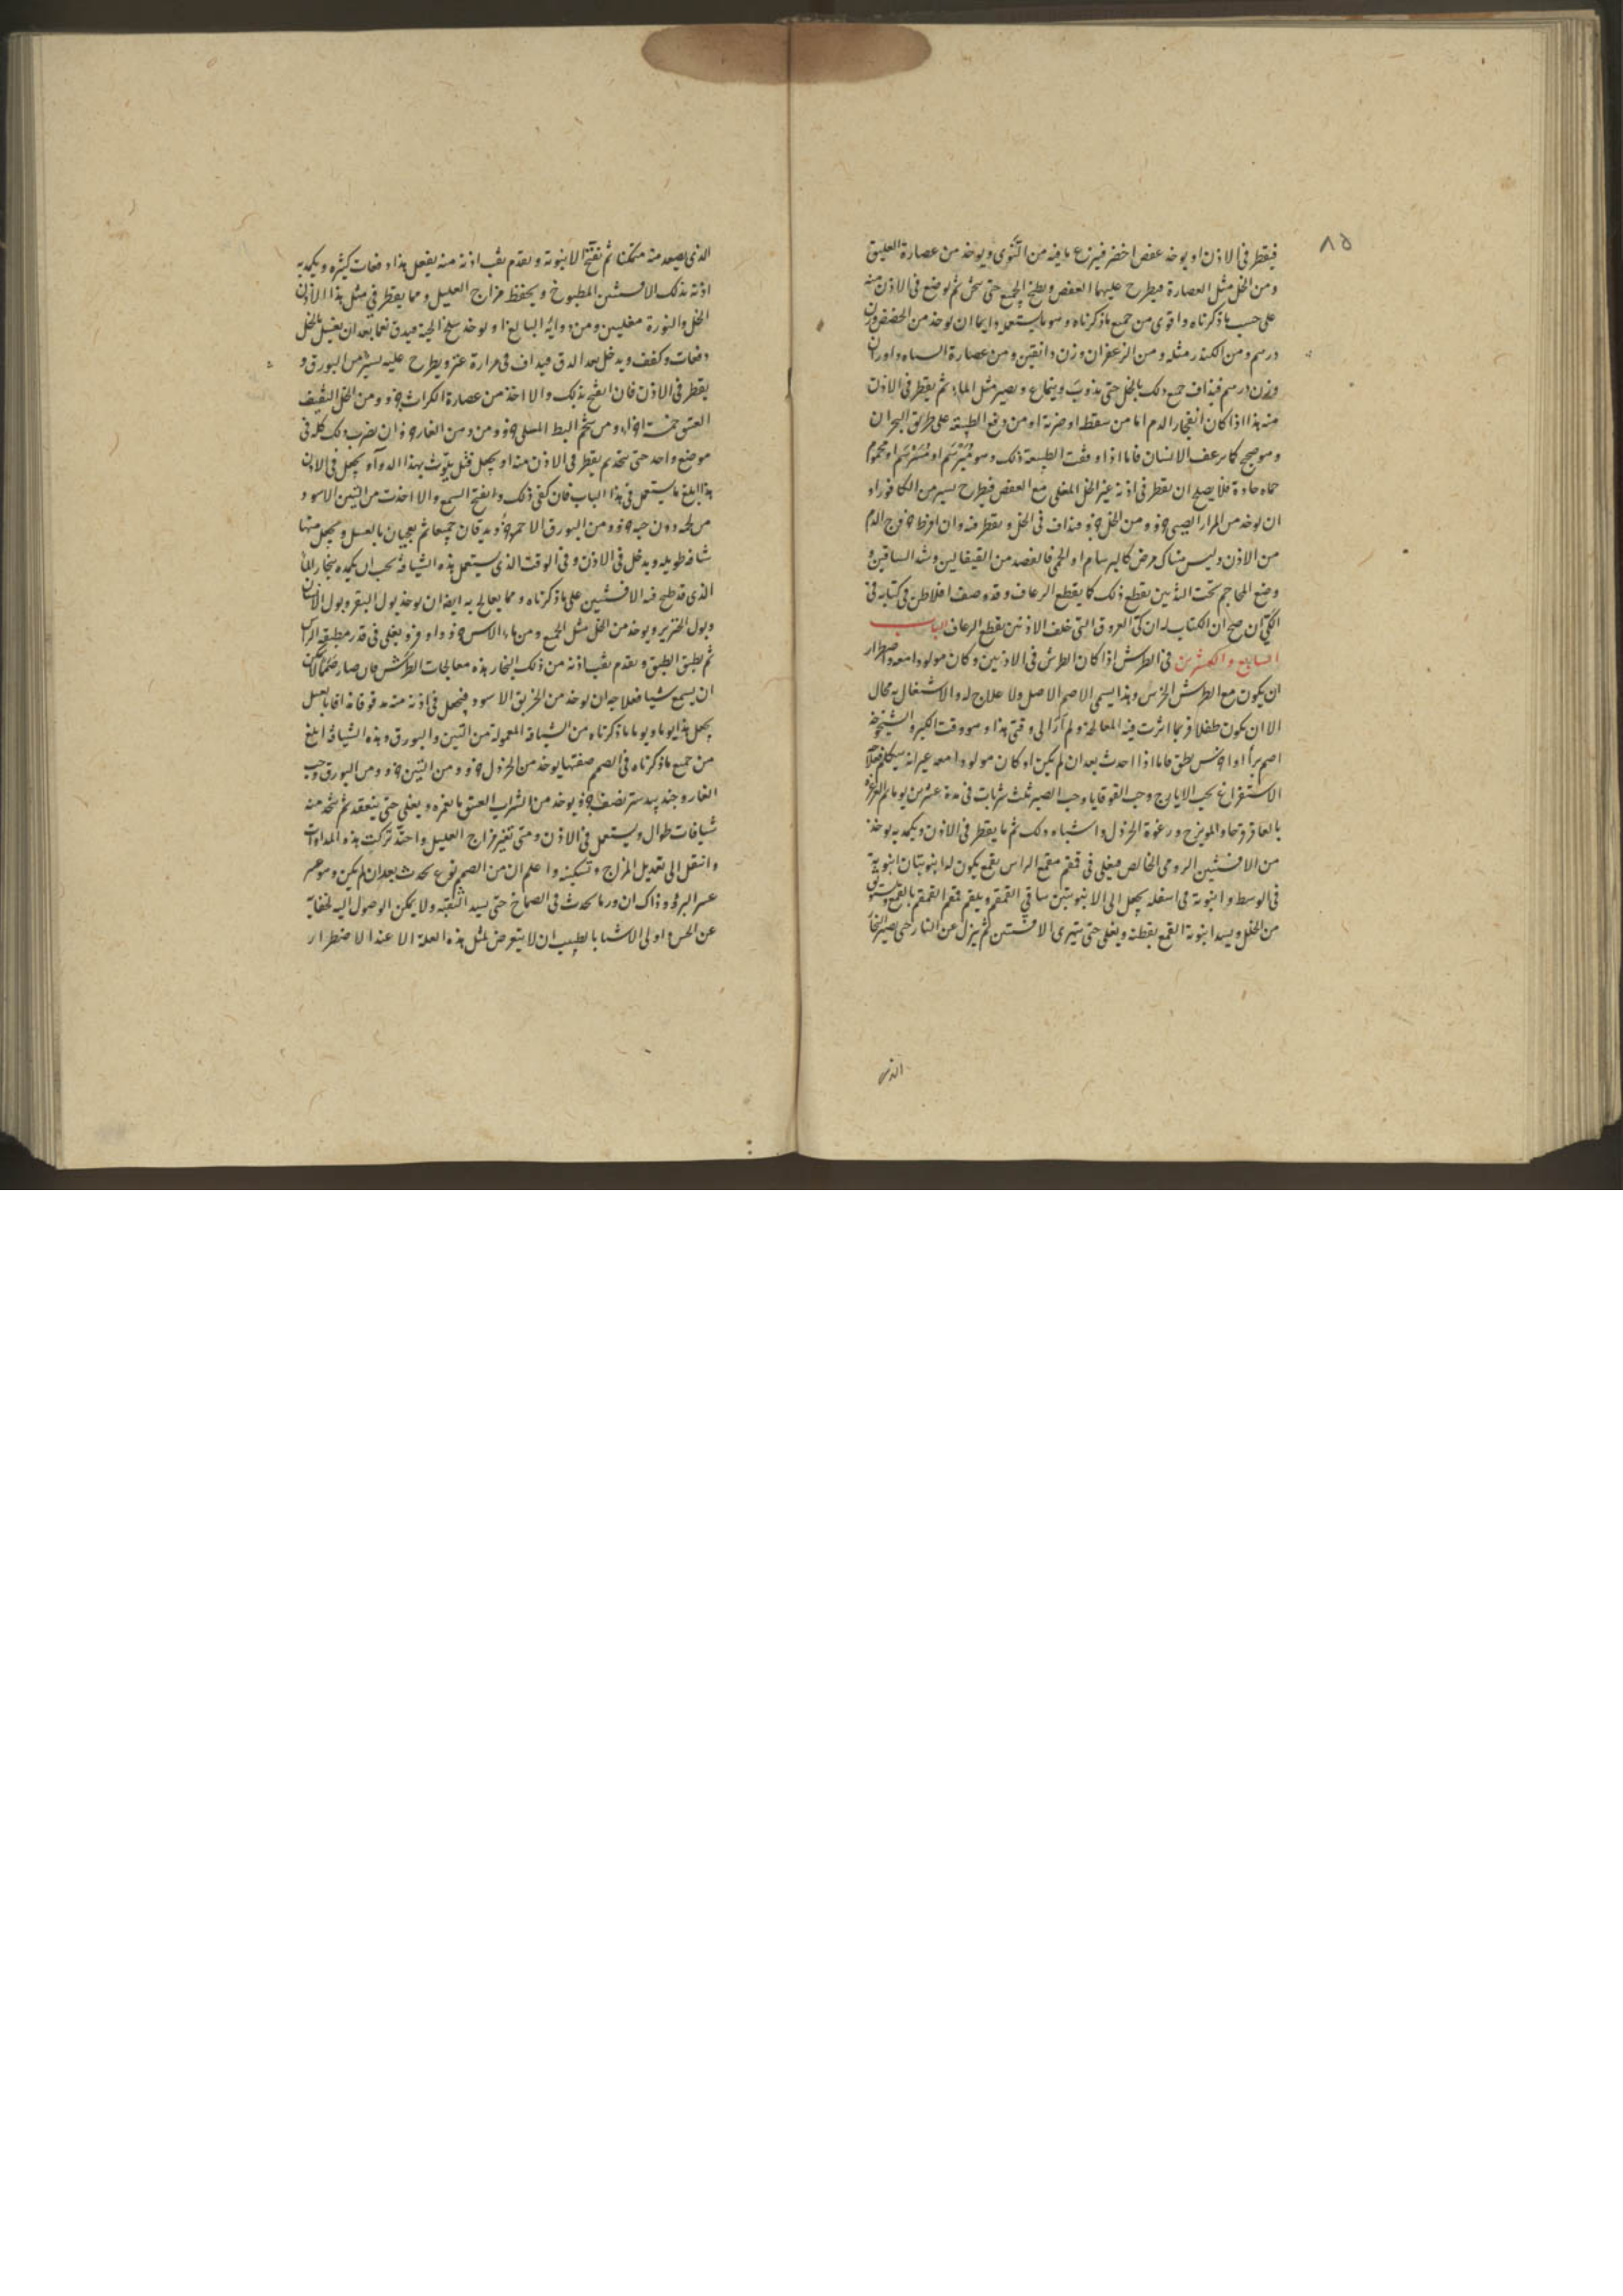 ٨٥
فيقطر في الاذن او يوخذ عفص اخضر فينزع ما فيه من النوى ويوخذ من عصارة العليق
ومن الخل مثل العصارة فيطرح عليهما العفص ويطبخ الجميع حتى سخن ثم يوضع في الاذن منه
على حسب ما ذكرناه واقوى من جميع ما ذكرناه وهو ما يستعمله دايما ان يوخذ من الحضض وزن
درهم ومن الكندر مثله ومن الزعفران وزن دانقين ومن عصارة
وزن درهم فيذاف جميع ذلك بالخل حتى يذوب وينماع ويصير مثل الماء ثم يقطر في الاذن
منه هذا اذا كان انفجار الدم اما من سقطة او ضربة او من دفع الطبيعة على طريق البحران
وهو صحيح كما يرعف الانسان فاما اذا دفعت الطبيعة ذلك وهو او محموم
حماه حادة فلا يصلح ان يقطر في اذنه غير الخل المغلى مع العفص فيطرح يسير من الكافور او
ان يوخذ من المرار جزو ومن الخل جزو فيذاف في الخل ويقطر منه وان افرط خروج الدم
من الاذن وليس هناك مرض كالبرسام او الحمى فالفصد من القيفالين وشد الساقين و
وضع المحاجم تحت الثديين يقطع ذلك كما يقطع الرعاف وقد وصف افلاطن في كتابه في
الكي ان صح ان الكتاب له ان كي العروق التي خلف الاذنين يقطع الرعاف الباب
السابع والعشرين في الطرش اذا كان الطرش في الاذنين وكان مولودا معه واضطرار
ان يكون مع الطرش الخرس وهذا يسمى الاصم الاصل ولا علاج له والاشتغال به محال
الا ان يكون طفلا فربما اثرت فيه المعالجة ولم ار الى وقتي هذا وهو وقت الكبر والشيخوخة
اصم برأ او اخرس نطق فاما اذا احدث بعد ان لم يكن او كان مولودا معه غير انه يتكلم
الاستفراغ بحب الايارج وحب القوقايا وحب الصبر ثلث شربات في مدة عشرين يوما ثم الغرغرة
بالعاقرقرحا والمويزج ورغوة الخردل واشباه ذلك ثم ما يقطر في الاذن ويكمد به يوخذ
من الافسنتين الرومي الخالص فيغلى في قمقم مقمع الراس بقمع يكون له انبوبتان انبوبة
في الوسط وانبوبة في اسفله يجعل الى الانبوبتين ساقي القمقم ويلقم فم القمقم بالقمع
من الخل ويسد انبوبة القمع بقطنة ويغلى حتى يتهرى الافسنتين ثم ينزل عن النار حتى يصير البخار
الذي
الذي يصعد منه ممكنا ثم تفتح الانبوبة ويقدم ثقب اذنه منه يفعل هذا دفعات كثيرة ويكمد به
اذنه بذلك الافسنتين المطبوخ ويحفظ مزاج العليل ومما يقطر في مثل هذا الاذان
الخل والنورة مغليين ومن دوائه البالغ او يوخذ سلخ الحية فيدق نعما بعد ان يغسل بالخل
دفعات وكفف ويدخل بعد الدق فيداف في مرارة عنز ويطرح عليه يسير من البورق و
يقطر في الاذن فان انفتح بذلك والا اخذ من عصارة الكراث جزو ومن الخل الثقيف
العتيق خمسة اجزاء ومن شحم البط المسلى جزو ومن دهن الغار جزوان يضرب ذلك كله في
موضع واحد حتى يتحد ثم يقطر في الاذن منه او يجعل فتل يلوث بهذا الدواء ويجعل في الاذن
هذا ابلغ ما يستعمل في هذا الباب فان كفى ذلك وانفتح السمع والا اخذت من التين الاسود
من لحمه دون حبه جزو ومن البورق الاحمر جزو ويدقان جميعا ثم يعجنان بالعسل ويجعل منها
شيافه طويله ويدخل في الاذن وفي الوقت الذي يستعمل هذه الشيافه يجب ان يكمده ببخار الماء
الذي قد طبخ فيه الافسنتين على ما ذكرناه ومما يعالج به ايضا ان يوخذ بول البقر وبول الانسان
وبول الخنزير ويوخذ من الخل مثل الجميع ومن ماء الاس جزو ويغلى في قدر مطبقة الراس
ثم يطبق الطبق ويقدم ثقب اذنه من ذلك البخار هذه معالجات الطرش فان صار صمما لا يمكن
ان يسمع شيا فعلاجه ان يوخذ من الخربق الاسود فيجعل في اذنه منه مدقوقا مدافا بالعسل
يجعل هذا يوما ويوما ما ذكرناه من الشيافة المعمولة من التين والبورق وهذه الشيافة ابلغ
من جميع ما ذكرناه في الصمم صفتها يوخذ من الخردل جزو ومن التين جزو ومن البورق وحب
الغار وجندبيدستر نصف جزو يوخذ من الشراب العتيق ما يغمره ويغلى حتى ينعقد ثم يتخذ منه
شيافات طوال ويستعمل في الاذن ومتى تغير مزاج العليل واحتد تركت هذه المداواة
وانتقل الى تعديل المزاج وتسكينه واعلم ان من الصمم نوع يحدث بعد ان لم يكن وهو عسر
عسر البرؤ وذاك ان ورما يحدث في الصماخ حتى يسد الثقبة ولا يمكن الوصول اليه لخفايه
عن الحس واولى الاشيا بالطبيب ان لا يتعرض لمثل هذه العلة الا عند الاضطرار